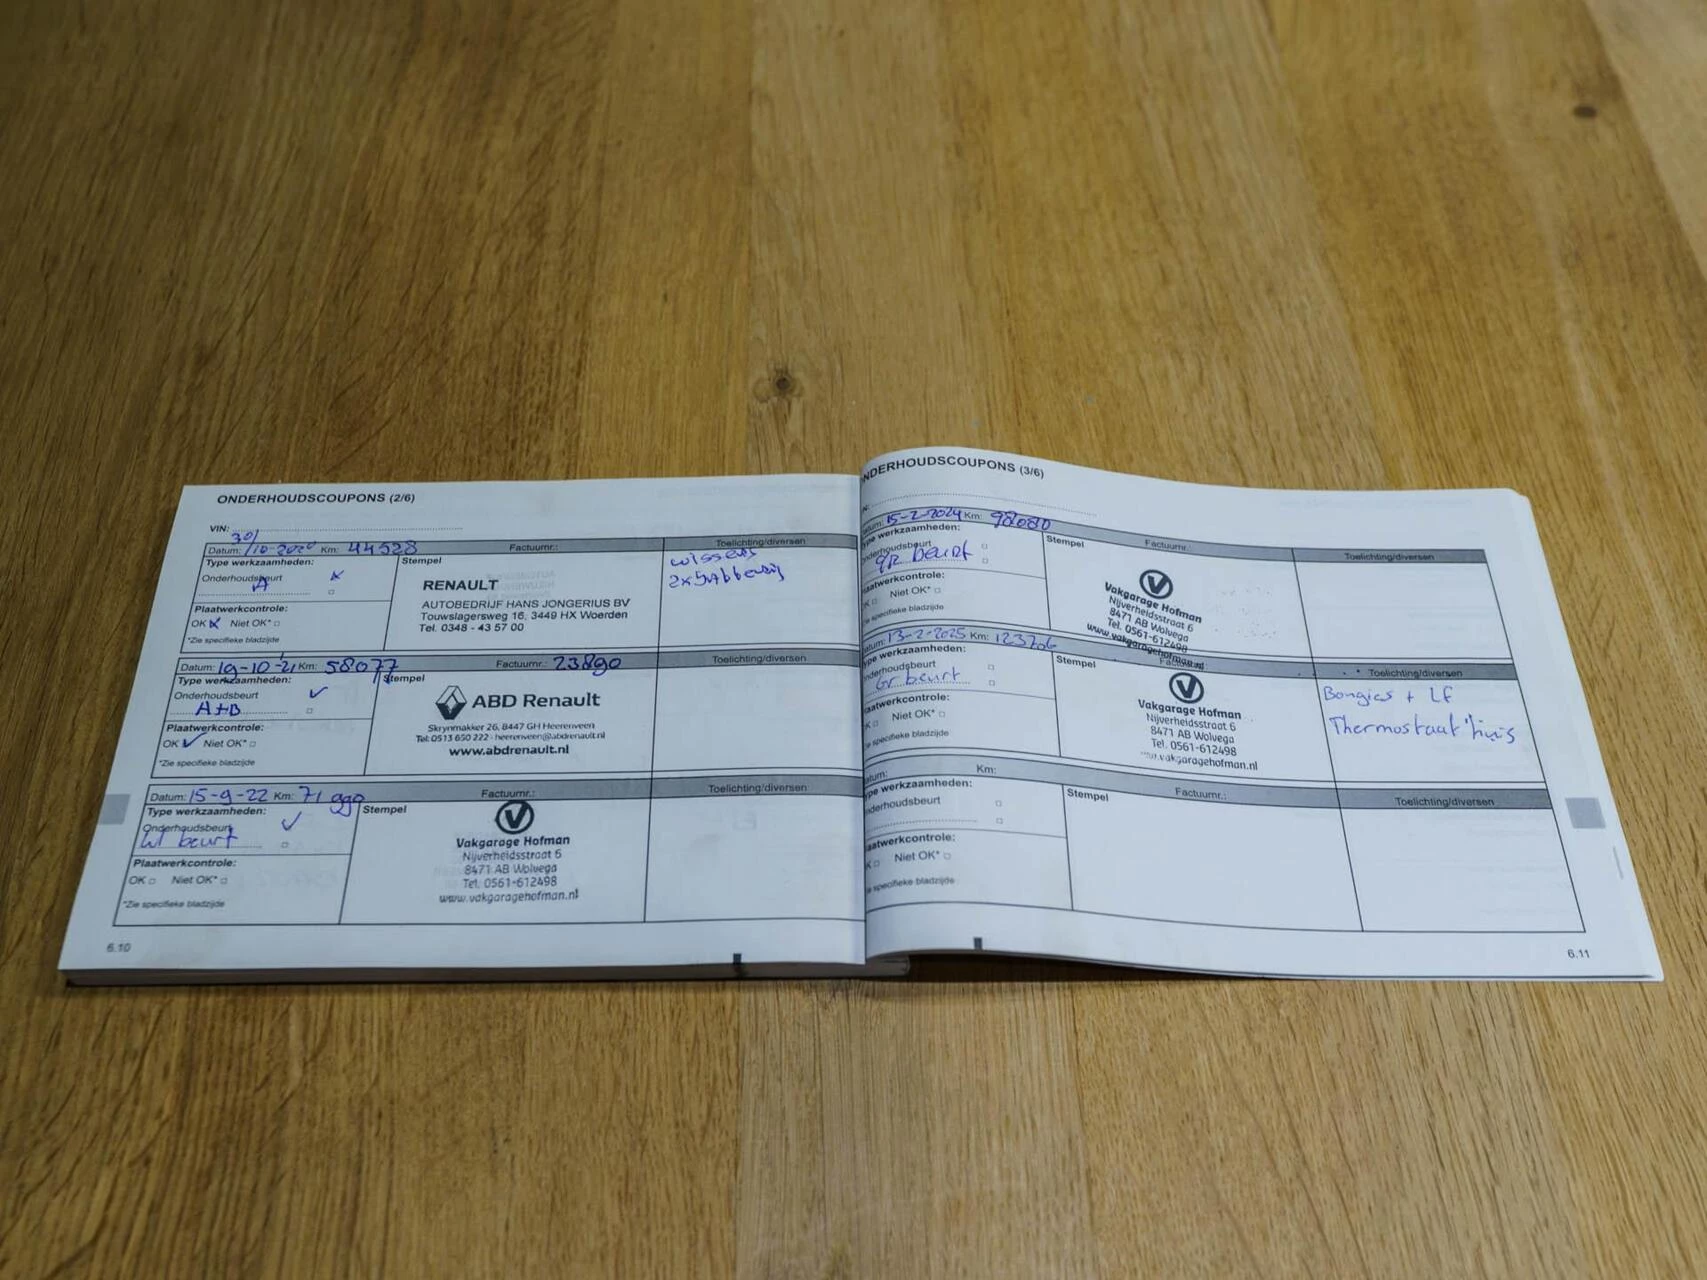 ONDERHOUDSCOUPONS (2/6)
VIN:
Datum: 30/10-2020 Km: 44528 Factuurnr.: Toelichting/diversen
Type werkzaamheden: Stempel
Onderhoudsbeurt x
A
Plaatwerkcontrole:
OK x Niet OK*
*Zie specifieke bladzijde
RENAULT
AUTOBEDRIJF HANS JONGERIUS BV
Touwslagersweg 16, 3449 HX Woerden
Tel. 0348 - 43 57 00
wissers
Datum: 19-10-'21 Km: 58077 Factuurnr.: 23890 Toelichting/diversen
Type werkzaamheden: Stempel
Onderhoudsbeurt ✓
A+B
Plaatwerkcontrole:
OK ✓ Niet OK*
*Zie specifieke bladzijde
ABD Renault
Skrynmakker 26, 8447 GH Heerenveen
Tel: 0513 650 222 - heerenveen@abdrenault.nl
www.abdrenault.nl
Datum: 15-9-22 Km: 71990 Factuurnr.: Toelichting/diversen
Type werkzaamheden: Stempel
Onderhoudsbeurt ✓
beurt
Plaatwerkcontrole:
OK Niet OK*
*Zie specifieke bladzijde
Vakgarage Hofman
Nijverheidsstraat 6
8471 AB Wolvega
Tel. 0561-612498
www.vakgaragehofman.nl
6.10
NDERHOUDSCOUPONS (3/6)
N:
atum: 15-2-2024 Km: 98080 Factuurnr.: Toelichting/diversen
Type werkzaamheden: Stempel
Onderhoudsbeurt
gr beurt
Plaatwerkcontrole:
OK Niet OK*
Zie specifieke bladzijde
Vakgarage Hofman
Nijverheidsstraat 6
8471 AB Wolvega
Tel. 0561-612498
www.vakgaragehofman.nl
atum: 13-2-2025 Km: 123706 Toelichting/diversen
Type werkzaamheden: Stempel
nderhoudsbeurt
Gr beurt
Plaatwerkcontrole:
OK Niet OK*
Zie specifieke bladzijde
Vakgarage Hofman
Nijverheidsstraat 6
8471 AB Wolvega
Tel. 0561-612498
www.vakgaragehofman.nl
Bougies + Lf
Thermostaat huis
atum: Km: Factuurnr.: Toelichting/diversen
Type werkzaamheden: Stempel
nderhoudsbeurt
aatwerkcontrole:
K Niet OK*
e specifieke bladzijde
6.11